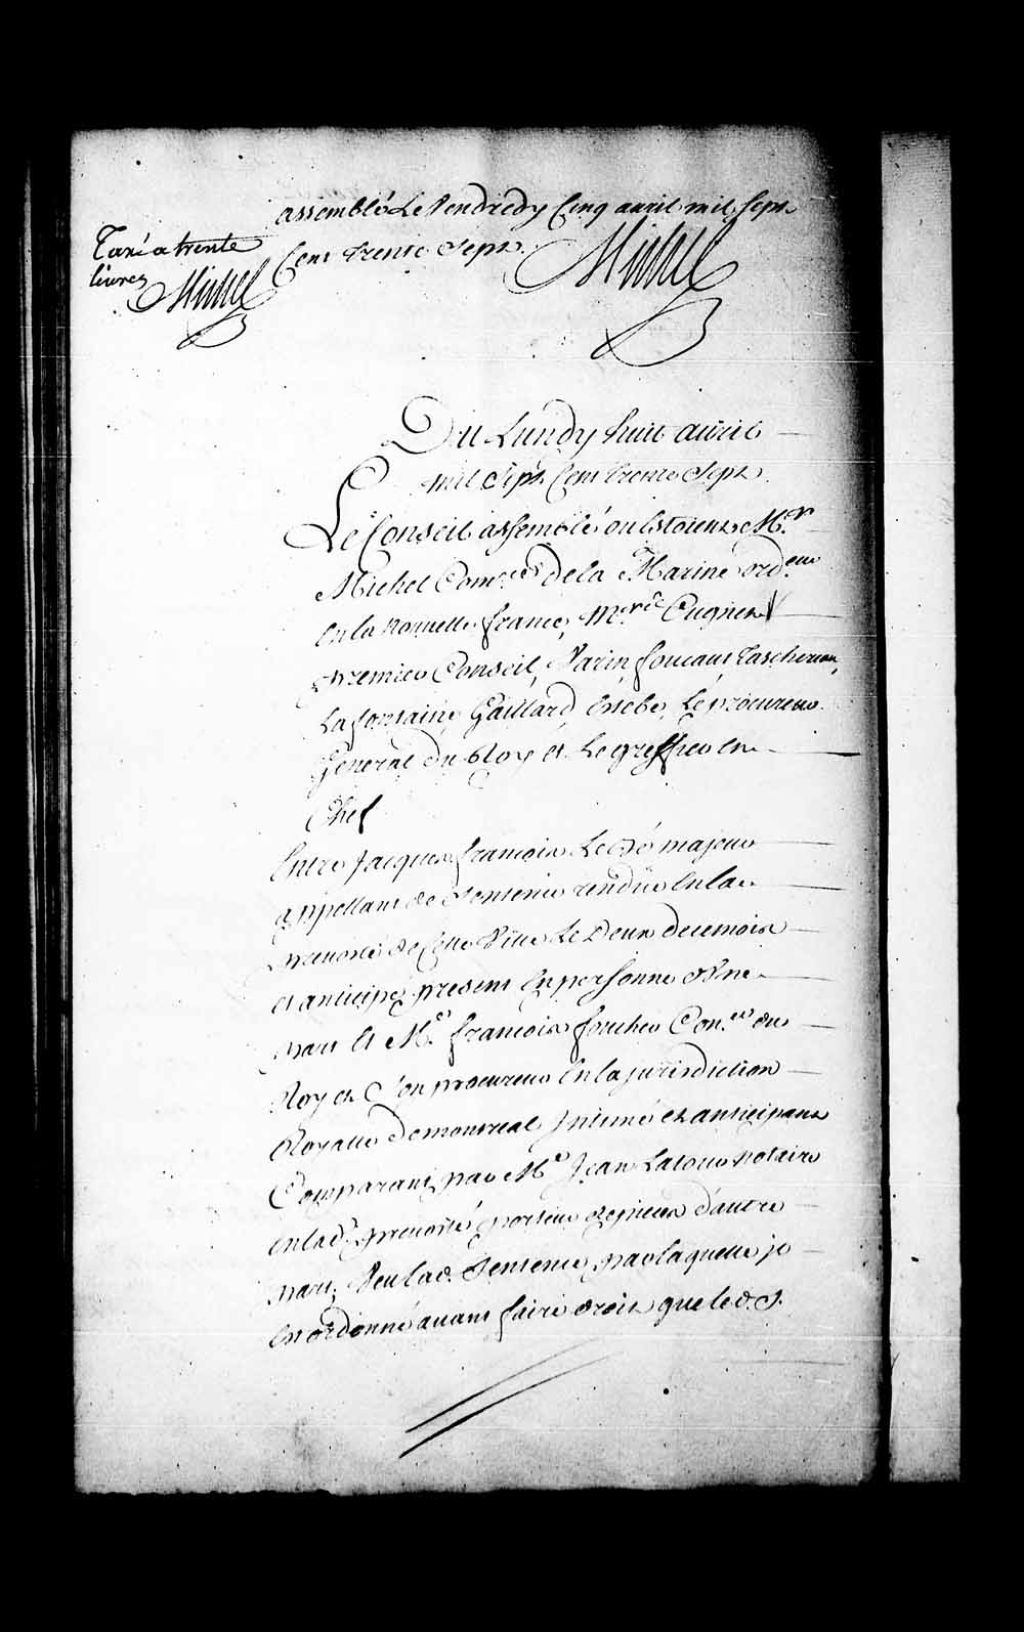 assemblé Le Vendredy Cinq avril mil Sept
Cent trente Sept. Michel
Taxé a trente
livres Michel
Du Lundy huit avril
mil Sept Cent trente Sept
Le Conseil assemblé ou Estoient Mr.
Michel Comre. de la Marine ord.eur
En la Nouvelle france, Mrs. Cugnet
premier Conseil, Varin, foucaut Taschereau,
La fontaine, Gaillard, Estebe, Le procureur
General du Roy et Le greffier En
Chef
Entre Jacques francois Le Dé majeur
appellant de Sentence rendüe En la
prevosté de Cette Ville Le Deux de ce mois
et anticipé present En personne d'Une
part Et Me. françois foucher Con.er du
Roy et Son procureur En la jurisdiction
Royalle de montreal Intimé et anticipant
Comparant par Me. Jean Latour Notaire
En lad. prevosté porteur de pieces d'autre
part, Veu lad. Sentence par laquelle je
Est ordonné avant faire droit que led. S.